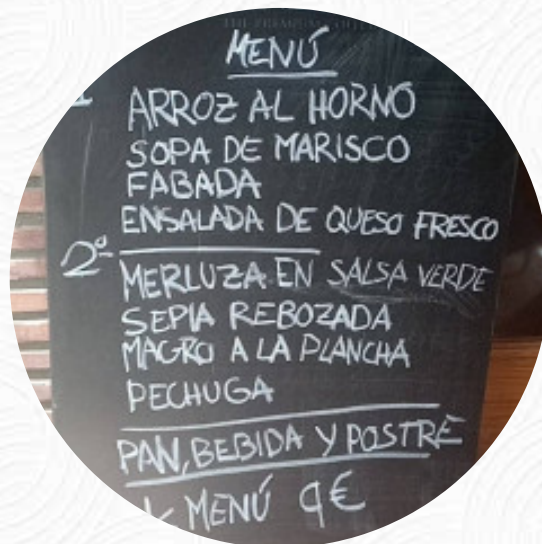 MENÚ
ARROZ AL HORNO
SOPA DE MARISCO
FABADA
ENSALADA DE QUESO FRESCO
2º
MERLUZA EN SALSA VERDE
SEPIA REBOZADA
MAGRO A LA PLANCHA
PECHUGA
PAN, BEBIDA Y POSTRE
MENÚ 9€